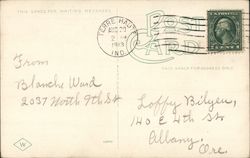 THIS SPACE FOR WRITING MESSAGES
TERRE HAUTE
AUG 20
2 PM
1913
IND.
POST
CARD
THIS SPACE FOR ADDRESS ONLY
From
Blanche Ward
2037 North 9th St
Loffy Bilyeu,
140 E 4th St
Albany.
Ore.
W